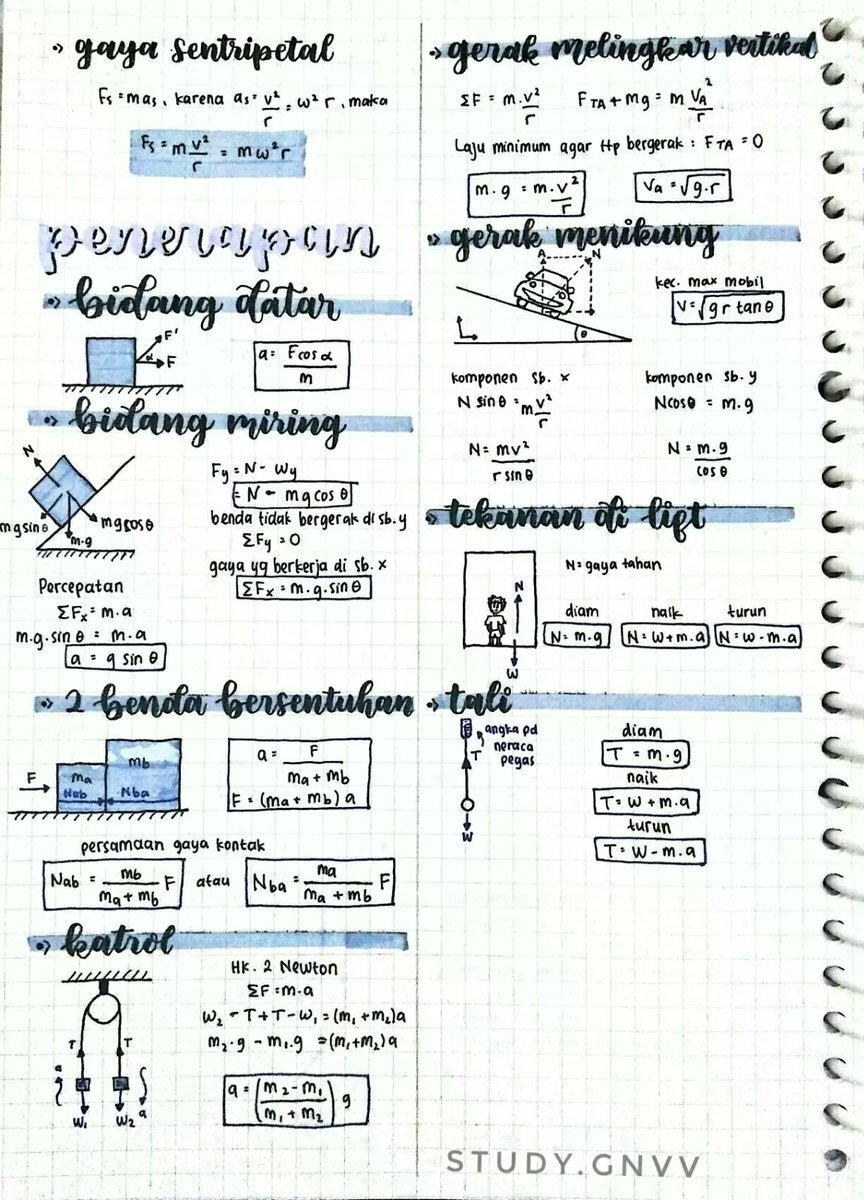 gaya sentripetal
Fs = mas, karena as = v²/r = ω² r, maka
Fs = m v²/r = mω²r
penerapan
bidang datar
F'
α
F
a = F cos α / m
bidang miring
N
mg sin θ
m.g
mg cos θ
Fy = N - Wy
= N - mg cos θ
benda tidak bergerak di sb.y
ΣFy = 0
gaya yg berkerja di sb. x
ΣFx = m.g.sin θ
Percepatan
ΣFx = m.a
m.g.sin θ = m.a
a = g sin θ
2 benda bersentuhan
F
ma
mb
Nab
Nba
a = F / ma + mb
F = (ma + mb) a
persamaan gaya kontak
Nab = mb / ma + mb F atau Nba = ma / ma + mb F
katrol
T
T
a
a
W₁
W₂
Hk. 2 Newton
ΣF = m.a
W₂ - T + T - W₁ = (m₁ + m₂)a
m₂.g - m₁.g = (m₁+m₂)a
a = (m₂ - m₁ / m₁ + m₂) g
gerak melingkar vertikal
ΣF = m.v²/r FTA + mg = m VA²/r
Laju minimum agar ttp bergerak : FTA = 0
m.g = m.v²/r Va = √g.r
gerak menikung
A
N
θ
kec. max mobil
V = √g r tan θ
komponen sb. x komponen sb. y
N sin θ = m v²/r N cos θ = m.g
N = mv² / r sin θ N = m.g / cos θ
tekanan di lift
N = gaya tahan
N
W
diam naik turun
N = m.g N = W + m.a N = W - m.a
tali
angka pd
neraca
pegas
T
W
diam
T = m.g
naik
T = W + m.a
turun
T = W - m.a
STUDY.GNVV